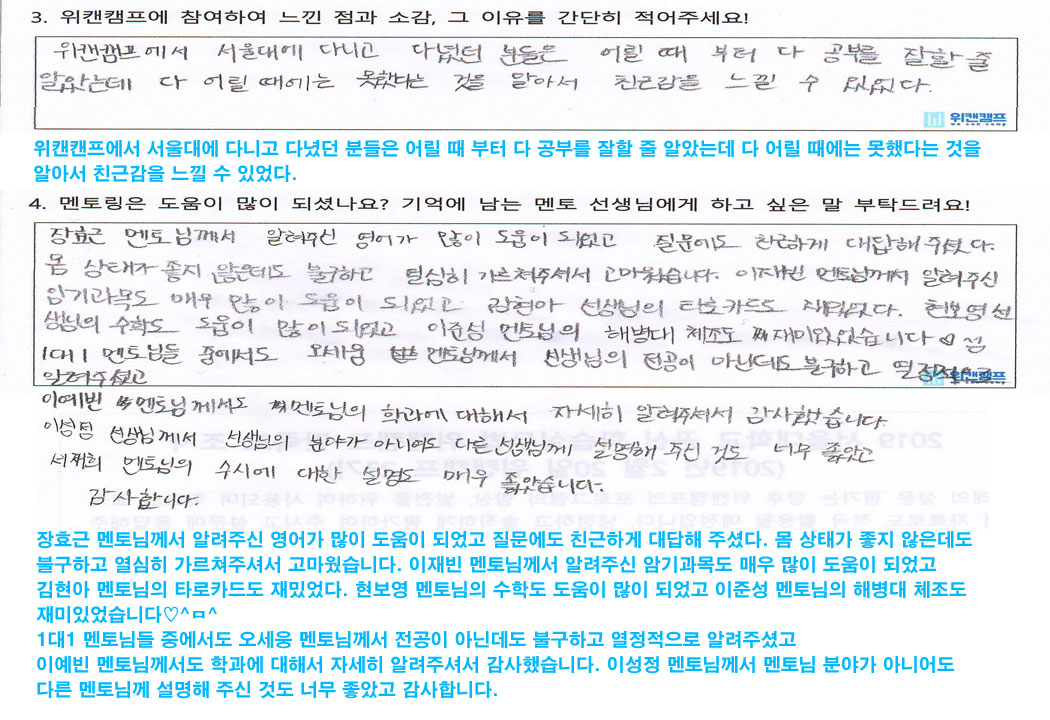 3. 위캔캠프에 참여하여 느낀 점과 소감, 그 이유를 간단히 적어주세요!
위캔캠프에서 서울대에 다니고 다녔던 분들은 어릴 때 부터 다 공부를 잘할 줄
알았는데 다 어릴 때에는 못했다는 것을 알아서 친근감을 느낄 수 있었다.
위캔캠프
we can camp
위캔캔프에서 서울대에 다니고 다녔던 분들은 어릴 때 부터 다 공부를 잘할 줄 알았는데 다 어릴 때에는 못했다는 것을
알아서 친근감을 느낄 수 있었다.
4. 멘토링은 도움이 많이 되셨나요? 기억에 남는 멘토 선생님에게 하고 싶은 말 부탁드려요!
장효근 멘토님께서 알려주신 영어가 많이 도움이 되었고 질문에도 친근하게 대답해 주셨다.
몸 상태가 좋지 않은데도 불구하고 열심히 가르쳐주셔서 고마웠습니다. 이재빈 멘토님께서 알려주신
암기과목도 매우 많이 도움이 되었고 김현아 선생님의 타로카드도 재밌었다. 현보영 선
생님의 수학도 도움이 많이 되었고 이준성 멘토님의 해병대 체조도 재미있었습니다♡
1대1 멘토님들 중에서도 오세웅 멘토님께서 선생님의 전공이 아닌데도 불구하고 열정적으로
위캔캠프
알려주셨고
이예빈 멘토님께서도 멘토님의 학과에 대해서 자세히 알려주셔서 감사했습니다.
이성정 선생님께서 선생님의 분야가 아니어도 다른 선생님께 설명해 주신 것도 너무 좋았고
멘토님의 수시에 대한 설명도 매우 좋았습니다.
감사합니다.
장효근 멘토님께서 알려주신 영어가 많이 도움이 되었고 질문에도 친근하게 대답해 주셨다. 몸 상태가 좋지 않은데도
불구하고 열심히 가르쳐주셔서 고마웠습니다. 이재빈 멘토님께서 알려주신 암기과목도 매우 많이 도움이 되었고
김현아 멘토님의 타로카드도 재밌었다. 현보영 멘토님의 수학도 도움이 많이 되었고 이준성 멘토님의 해병대 체조도
재미있었습니다♡^ㅁ^
1대1 멘토님들 중에서도 오세웅 멘토님께서 전공이 아닌데도 불구하고 열정적으로 알려주셨고
이예빈 멘토님께서도 학과에 대해서 자세히 알려주셔서 감사했습니다. 이성정 멘토님께서 멘토님 분야가 아니어도
다른 멘토님께 설명해 주신 것도 너무 좋았고 감사합니다.